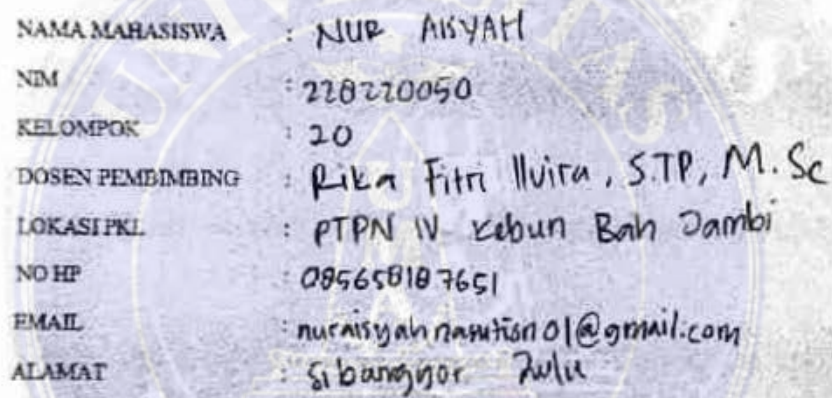 NAMA MAHASISWA : NUR AISYAH
NIM : 228220050
KELOMPOK : 20
DOSEN PEMBIMBING : Rika Fitri Ilvira, S.TP, M.Sc
LOKASI PKL : PTPN IV Kebun Bah Jambi
NO HP : 085658187651
EMAIL : nuraisyahnasution01@gmail.com
ALAMAT : Sibanggor Julu